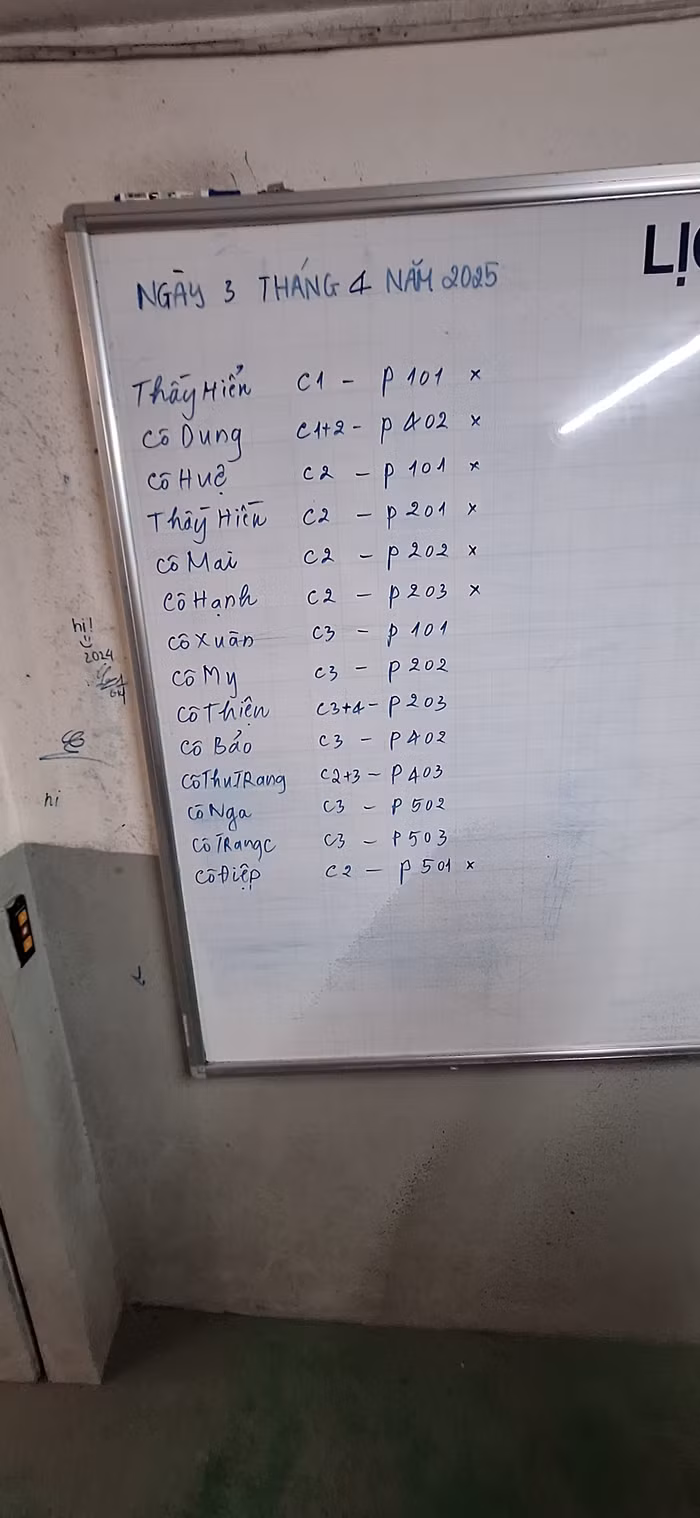 LỊC
NGÀY 3 THÁNG 4 NĂM 2025
Thầy Hiển C1 - P 101 x
Cô Dung C1+2 - P 402 x
Cô Huệ C2 - P 101 x
Thầy Hiền C2 - P 201 x
Cô Mai C2 - P 202 x
Cô Hạnh C2 - P 203 x
Cô Xuân C3 - P 101
Cô My C3 - P 202
Cô Thiện C3+4 - P 203
Cô Bảo C3 - P 402
Cô Thu TRang C2+3 - P 403
Cô Nga C3 - P 502
Cô TRang C3 - P 503
Cô Điệp C2 - P 501 x
hi!
2024
hi